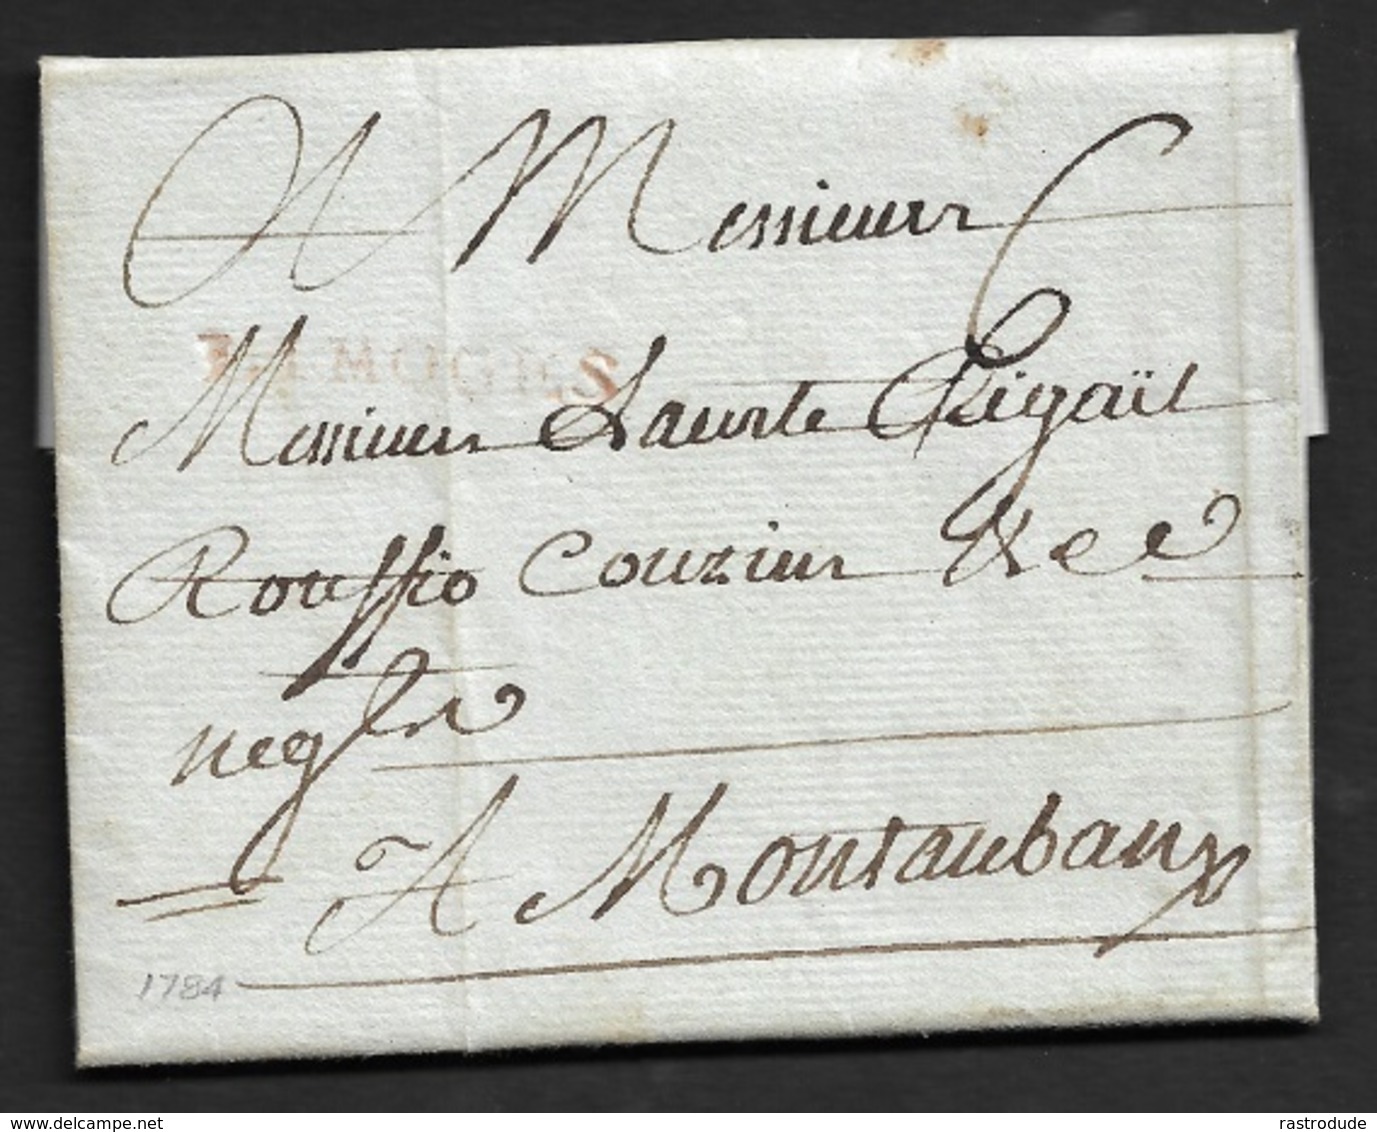 A Messieurs
LIMOGES
Messieurs Lacoste Rigail
Rouffio Couzin &ce
negts
A Montauban
1784
delcampe.net
rastrodude